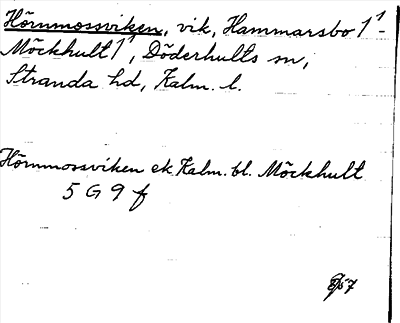 Hörnmossviken, vik, Hammarsbo 1¹-
Möckhult 1¹, Döderhults sn,
Stranda hd, Kalm. l.
Hörnmossviken ek. Kalm. bl. Möckhult
5 G 9 f